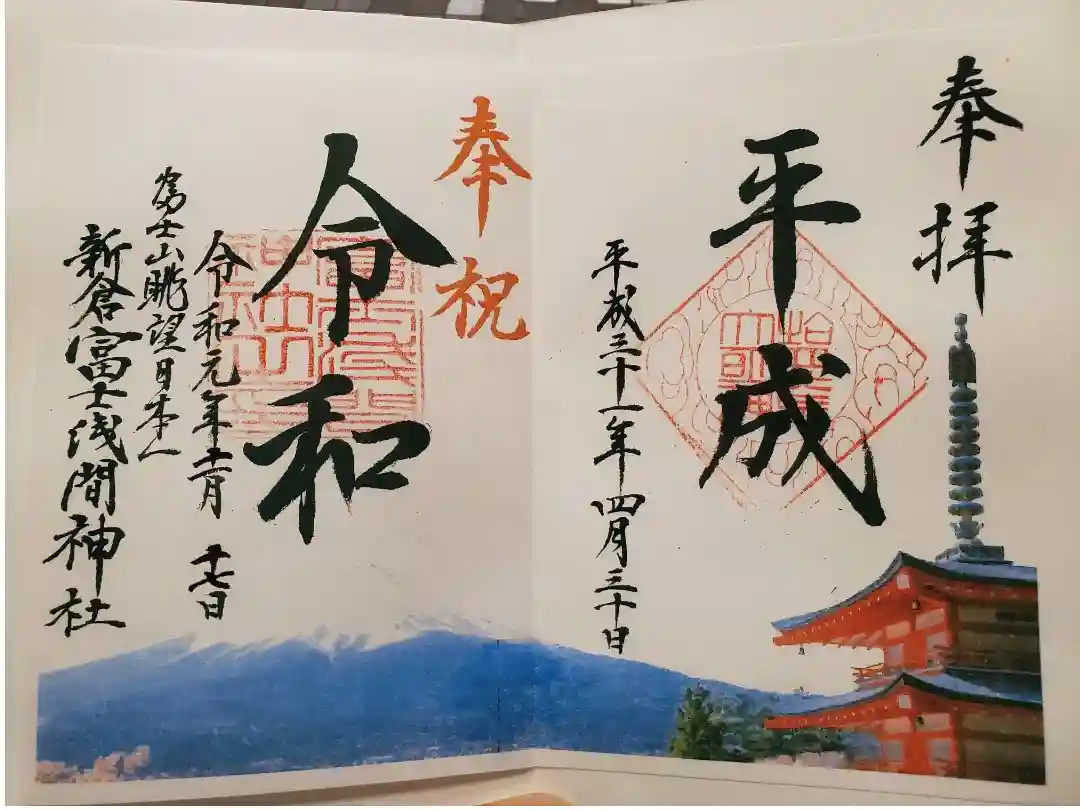 奉拝
平成
平成三十一年四月三十日
奉祝
令和
令和元年十二月 十七日
富士山眺望日本一
新倉富士浅間神社